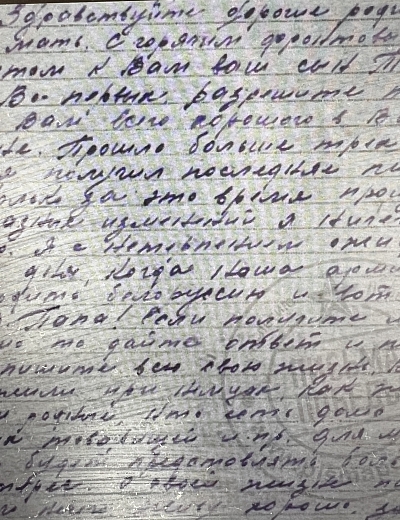 Здравствуйте дорогие роди
мать. С горячим фронтовы
етом к Вам ваш сын П
Во первых разрешите п
Вам всего хорошего в Ва
не. Прошло больше трех
я получил последнее пи
олько за это время прои
азных изменений я ниче
о. Я с нетерпением ожи
дня, когда наша арми
одить белоруссию и
Папа! Если получите
но то дайте ответ и п
пишите всю свою жизнь
жили при немцах, как
и родный что есть дома
к товарищей и.пр. для м
будет представлять боль
терес о своей жизни
живу хорошо.